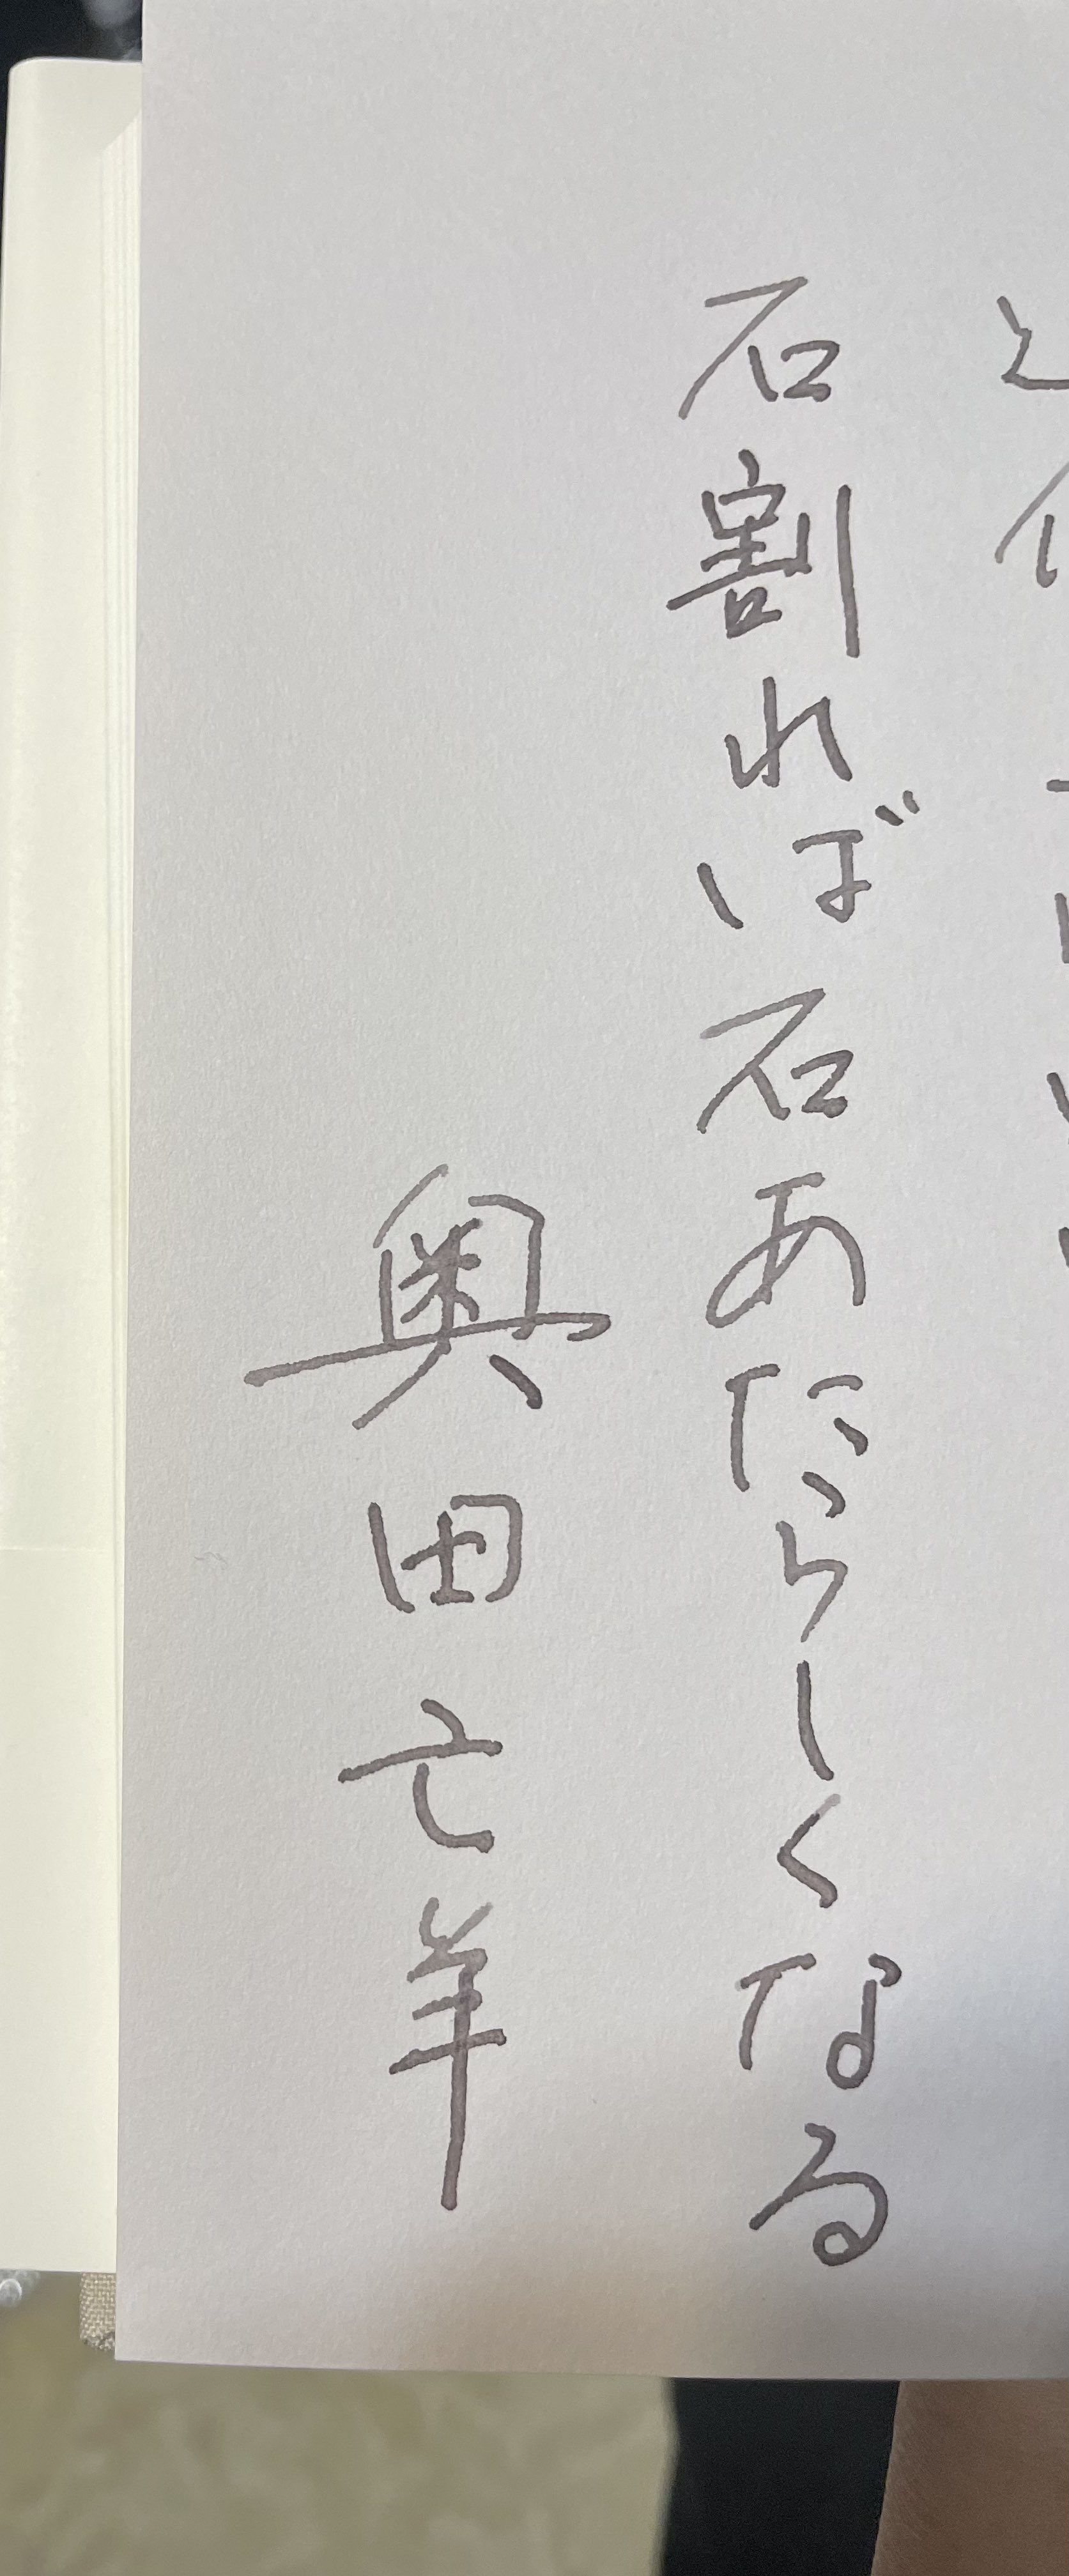 石割れば石あたらしくなる
奥田亡羊